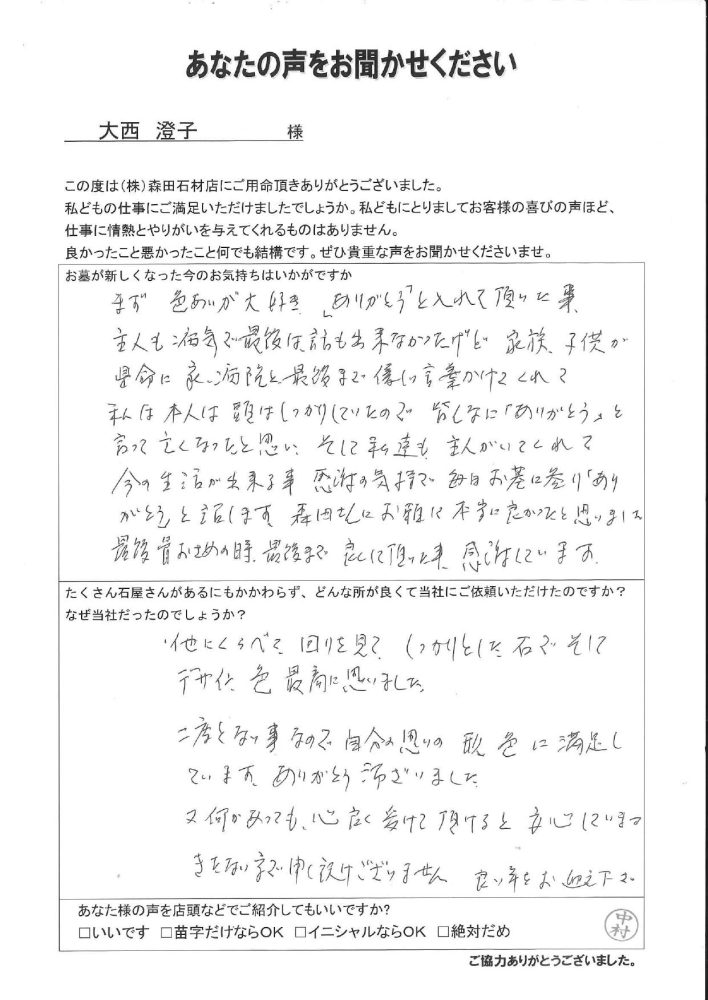 あなたの声をお聞かせください
大西 澄子 様
この度は(株)森田石材店にご用命頂きありがとうございました。
私どもの仕事にご満足いただけましたでしょうか。私どもにとりましてお客様の喜びの声ほど、
仕事に情熱とやりがいを与えてくれるものはありません。
良かったこと悪かったこと何でも結構です。ぜひ貴重な声をお聞かせくださいませ。
お墓が新しくなった今のお気持ちはいかがですか
まず 色あいが大好き 「ありがとう」と入れて頂いた事
主人も病気で最後は話も出来なかったけど 家族、子供が
懸命に 家、病院と最後まで優しい言葉かけてくれて
私は本人は頭はしっかりしていたので 皆んなに「ありがとう」と
言って亡くなったと思い、そして私達も 主人がいてくれて
今の生活が出来る事 感謝の気持で毎日お墓に参り「あり
がとう」と話します。森田さんにお願い 本当に良かったと思いました
最後骨おさめの時、最後まで 良くして頂いた事、感謝しています。
たくさん石屋さんがあるにもかかわらず、どんな所が良くて当社にご依頼いただけたのですか?
なぜ当社だったのでしょうか?
他にくらべて、回りを見て、しっかりとした石で そして
デザイン、色 最高に思いました。
二度とない事なので 自分の思いの 形、色 に 満足し
ています。ありがとう ございました
又何かあっても、心良く 受けて 頂けると 安心しています
きたない字で申し訳ございません 良い年をお迎え下さい
あなた様の声を店頭などでご紹介してもいいですか?
□いいです □苗字だけならOK □イニシャルならOK □絶対だめ
中村
ご協力ありがとうございました。